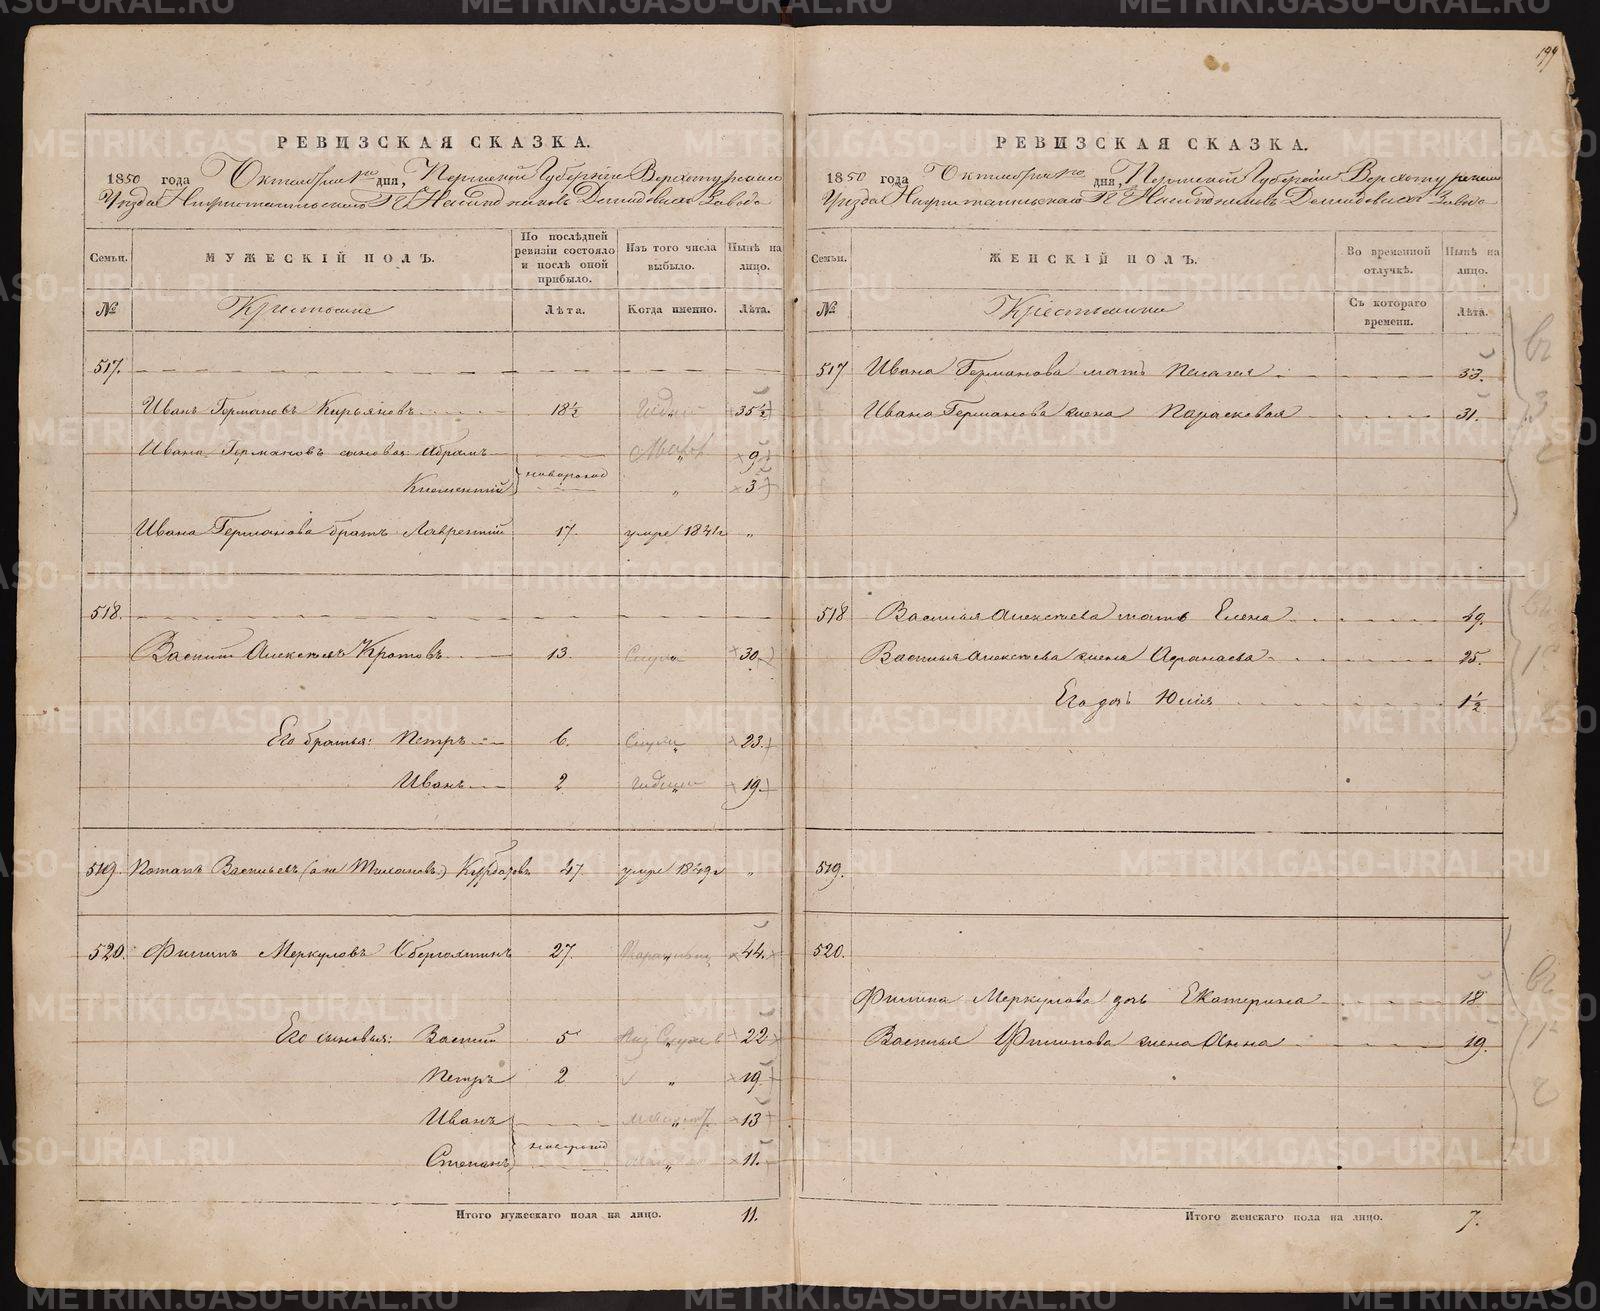 199
РЕВИЗСКАЯ СКАЗКА.
1850 года Октября 1го дня, Пермской Губернии Верхотурскаго
Уезда Нижнетагильскаго Г.Г. Наследниковъ Демидовыхъ Завода
Семьи.
МУЖЕСКІЙ ПОЛЪ.
По послѣдней ревизіи состояло и послѣ оной прибыло.
Изъ того числа выбыло.
Нынѣ на лицо.
№ Крестьяне Лѣта. Когда именно. Лѣта.
517.
Иванъ Германовъ Кирьяновъ 18½ 35½
Ивана Германовъ сыновья: Абрамъ 9½
Климентій новорожд 3
Ивана Германова братъ Лаврентій 17. умре 1841г "
518.
Василій Алексѣевъ Кротовъ 13. 30.
Его братья: Петръ 6. 23.
Иванъ 2 19.
519. Потапъ Васильевъ (онже Тимановъ) 47. умре 1849г "
520. Филипъ Меркуловъ 27. 44.
Его сыновья: Василій 5 22
Петръ 2 " 19.
Иванъ 13
Степанъ новорожд 11.
Итого мужескаго пола на лицо. 11.
РЕВИЗСКАЯ СКАЗКА.
1850 года Октября 1го дня, Пермской Губерніи Верхотурскаго
Уезда Нижнетагильскаго Г.Г. Наследниковъ Демидовыхъ Завода
Семьи.
ЖЕНСКІЙ ПОЛЪ.
Во временной отлучкѣ.
Нынѣ на лицо.
№ Крестьянки Съ котораго времени. Лѣта.
517 Ивана Германова мать Пелагея 53.
Ивана Германова жена Парасковья 31.
518 Василья Алексѣева мать Елена 49.
Василья Алексѣева жена Афанасва 25.
Его дочь Юлія 1½
519.
520.
Филипа Меркулова дочь Екатерина 18
Василья Филипова жена Анна 19.
Итого женскаго пола на лицо. 7.
METRIKI.GASO-URAL.RU